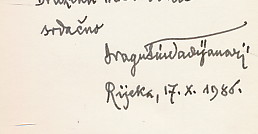 srdačno
Dragutin Tadijanović
Rijeka, 17. X. 1986.